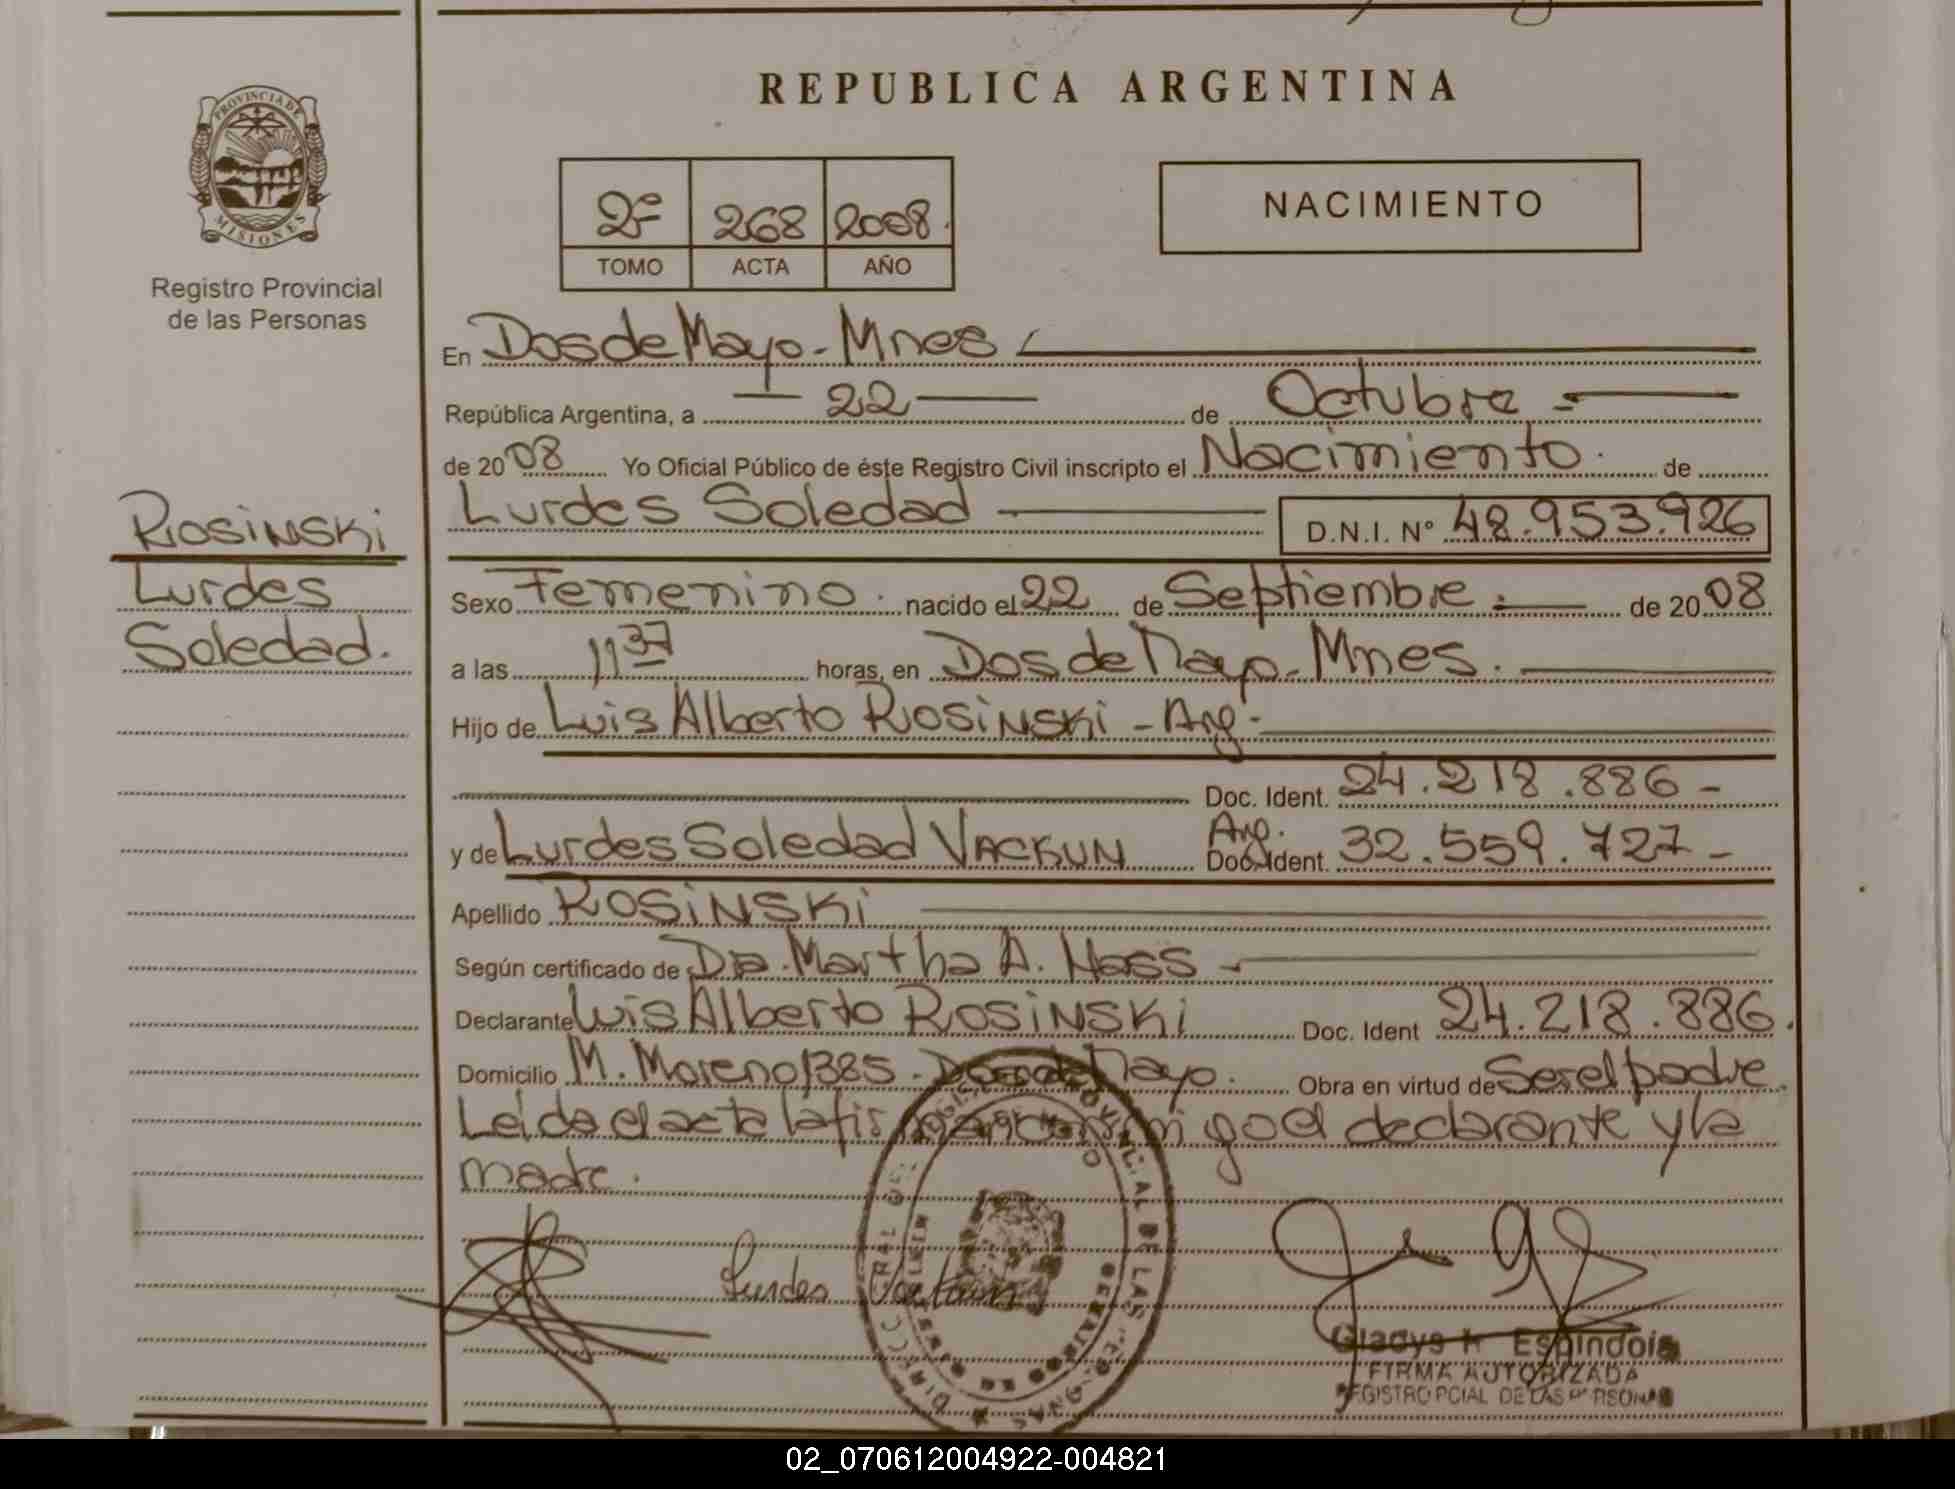 REPUBLICA ARGENTINA
PROVINCIA DE
MISIONES
Registro Provincial
de las Personas
2º 268 2008.
TOMO ACTA AÑO
NACIMIENTO
En Dos de Mayo - Mnes
República Argentina, a 22 de Octubre
de 2008 Yo Oficial Público de éste Registro Civil inscripto el Nacimiento. de
Lurdes Soledad D.N.I. Nº 48.953.926
Rosinski
Lurdes
Soledad.
Sexo Femenino. nacido el 22 de Septiembre. de 2008
a las 11 37 horas, en Dos de Mayo - Mnes.
Hijo de Luis Alberto Rosinski - Arg.
Doc. Ident. 24.218.886 -
y de Lurdes Soledad Vackun Arg. Doc. Ident. 32.559.727 -
Apellido Rosinski
Según certificado de Dra. Martha A. Hass
Declarante Luis Alberto Rosinski Doc. Ident 24.218.886.
Domicilio M. Moreno 1385 - Dos de Mayo. Obra en virtud de Ser el padre
Leida el acta la firman conmigo el declarante y la
madre.
Lurdes
Gladys Espindola
FIRMA AUTORIZADA
REGISTRO PCIAL DE LAS PERSONAS
02_070612004922-004821